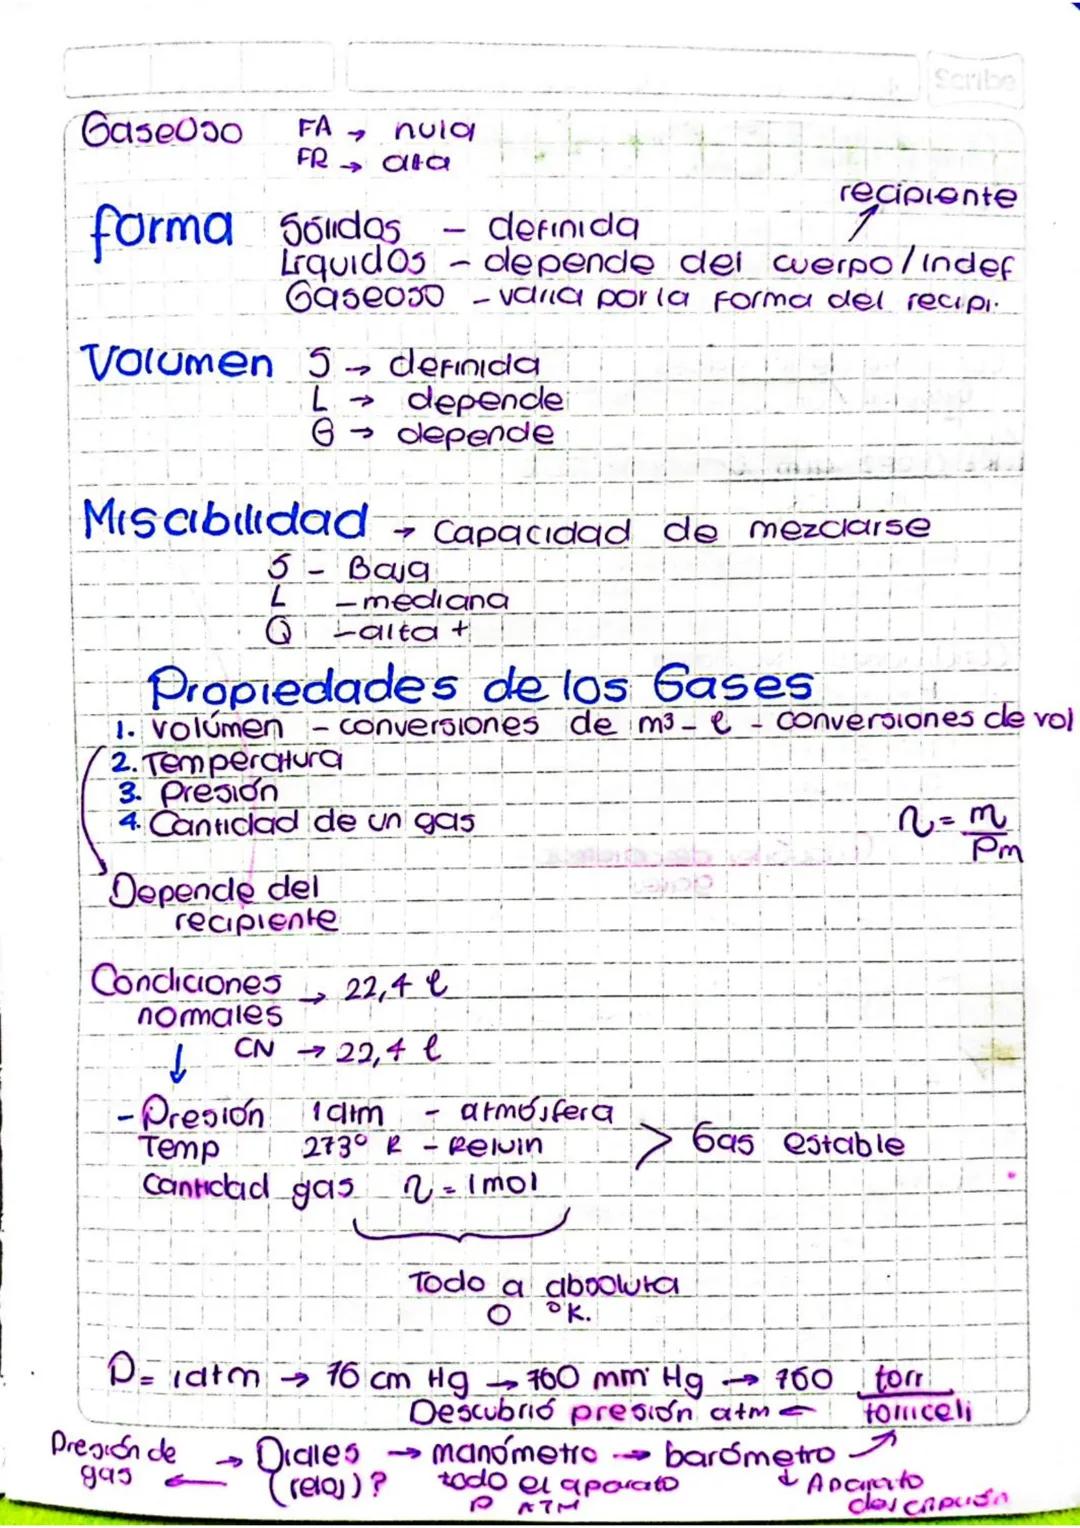 Scribe
Gaseoso FA → nula
FR → alta
recipiente
forma Sólidos - definida
Líquidos - depende del cuerpo/indef
Gaseoso - varia por la forma del recipi.
Volumen S → definida
L → depende
G → depende
Miscibilidad → Capacidad de mezclarse
S - Baja
L - mediana
G - alta +
Propiedades de los Gases
1. volúmen - conversiones de m³ - l - conversiones de vol
2. Temperatura
3. Presión
4. Cantidad de un gas
n = m / Pm
Depende del
recipiente
Condiciones → 22,4 l
normales
CN → 22,4 l
- Presión 1 atm - atmósfera
Temp 273° K - Kelvin > Gas estable
Cantidad gas n = 1 mol
Todo a absoluta
0 °K.
P = 1atm → 76 cm Hg → 760 mm Hg → 760 torr
Descubrió presión atm ← torriceli
Presión de gas ← → Diales → manómetro → barómetro
(reloj)? todo el aparato ↓ Aparato
P ATM